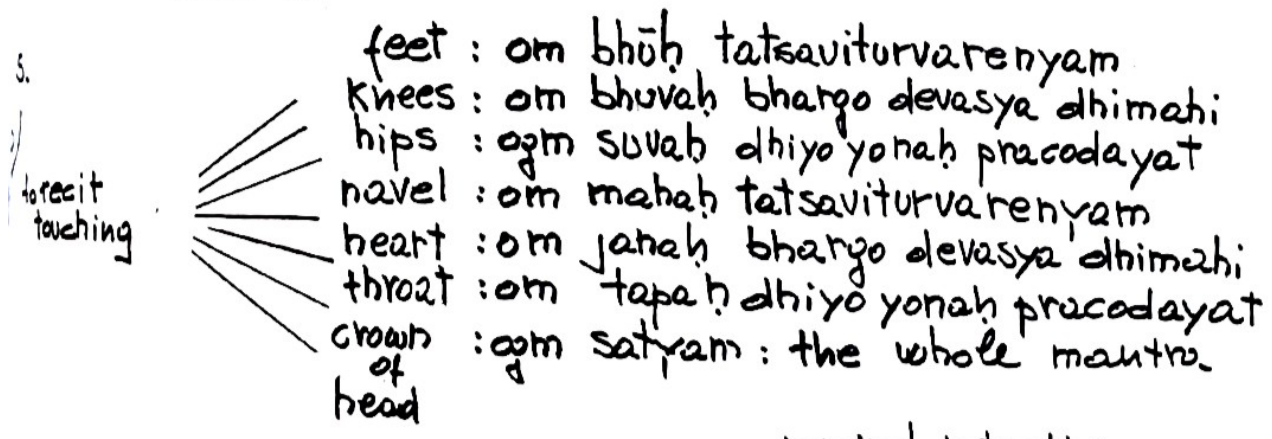 5.
to recit
touching
feet : om bhūḥ tatsaviturvarenyam
knees : om bhuvaḥ bhargo devasya dhimahi
hips : ogm suvaḥ dhiyo yonaḥ pracodayat
navel : om mahaḥ tatsaviturvarenyam
heart : om janaḥ bhargo devasya dhimahi
throat : om tapaḥ dhiyo yonaḥ pracodayat
crown : ogm satyam : the whole mantra
of
head